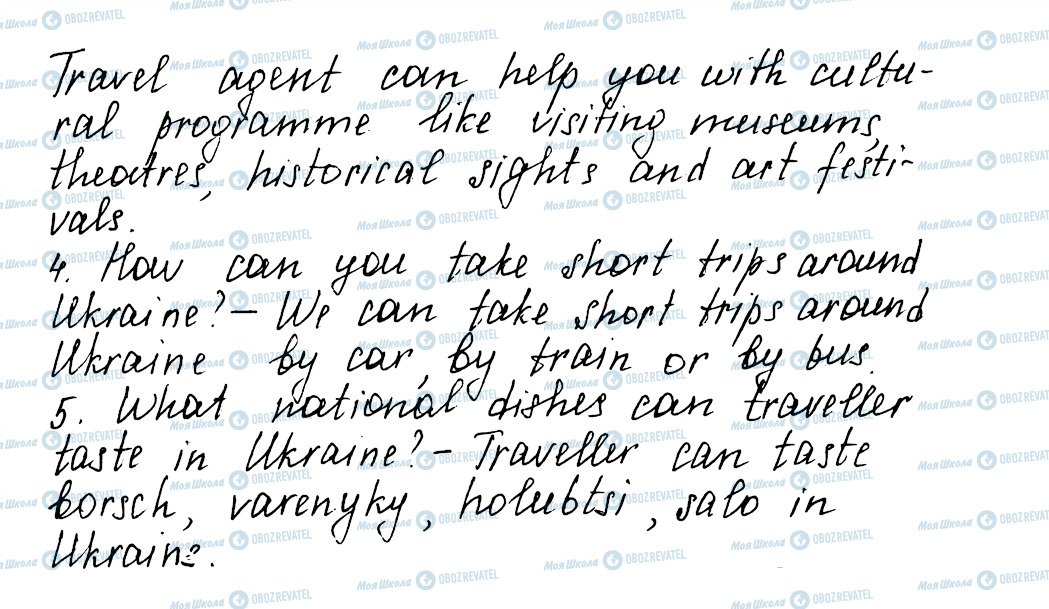 Travel agent can help you with cultu-
ral programme like visiting museums,
theatres, historical sights and art festi-
vals.
4. How can you take short trips around
Ukraine? – We can take short trips around
Ukraine by car, by train or by bus.
5. What national dishes can traveller
taste in Ukraine? – Traveller can taste
borsch, varenyky, holubtsi, salo in
Ukraine.
Моя Школа OBOZREVATEL